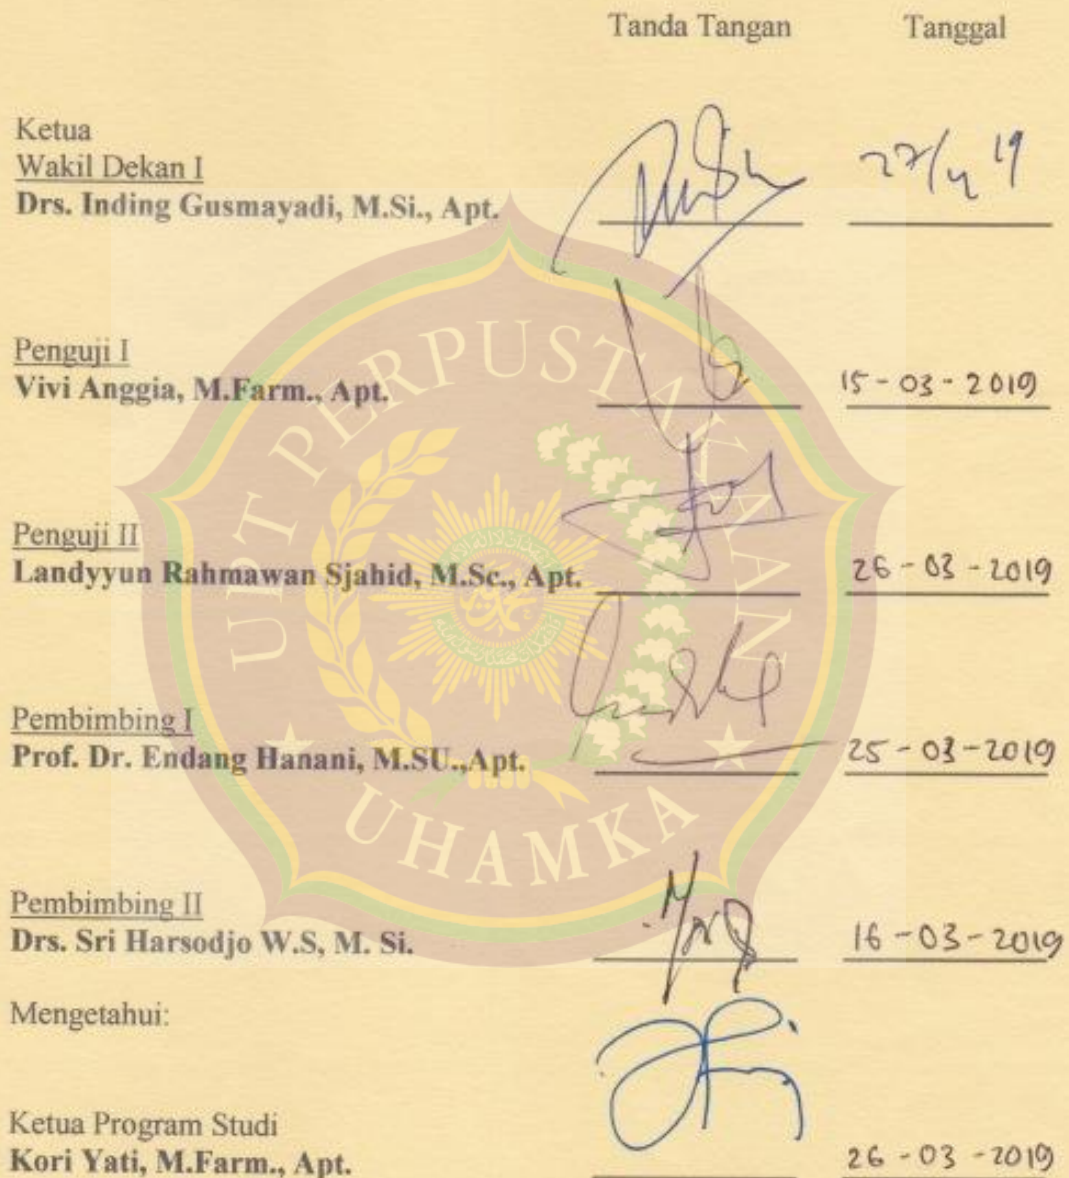 Tanda Tangan Tanggal
Ketua
Wakil Dekan I
Drs. Inding Gusmayadi, M.Si., Apt. 27/4 19
Penguji I
Vivi Anggia, M.Farm., Apt. 15-03-2019
Penguji II
Landyyun Rahmawan Sjahid, M.Sc., Apt. 26-03-2019
Pembimbing I
Prof. Dr. Endang Hanani, M.SU.,Apt. 25-03-2019
Pembimbing II
Drs. Sri Harsodjo W.S, M. Si. 16-03-2019
Mengetahui:
Ketua Program Studi
Kori Yati, M.Farm., Apt. 26-03-2019
UPT PERPUSTAKAAN
UHAMKA